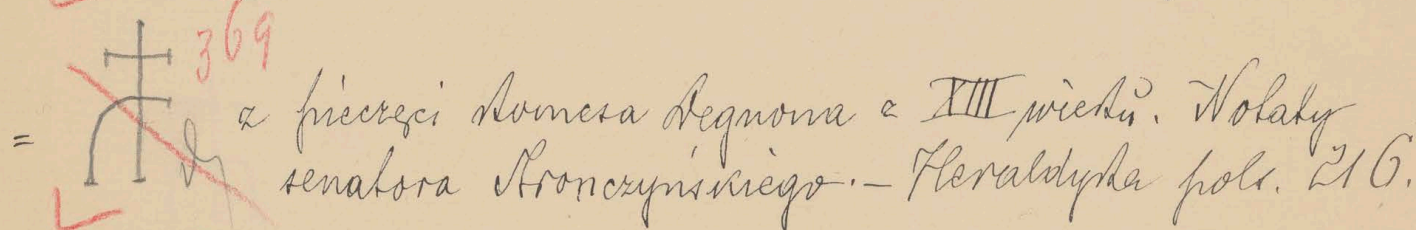 369
= z pieczęci komesa Degnona z XIII wieku. Notaty
senatora Stronczyńskiego. — Heraldyka pols. 216.